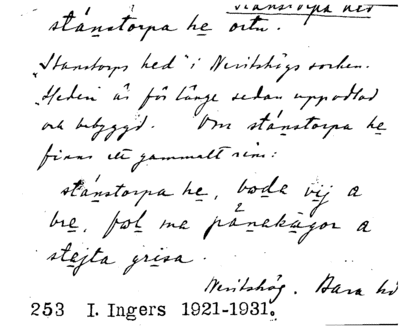 stánstorpa he ortn.
„Stanstorps hed" i Nevitshögs socken.
„Heden" är för länge sedan uppodlad
och bebyggd. Om stánstorpa he
finns ett gammalt rim:
stánstorpa he, boda vij a
bre, fol ma pånakågor a
stajta grisa.
Nevitshög. Bara
253 I. Ingers 1921-1931.